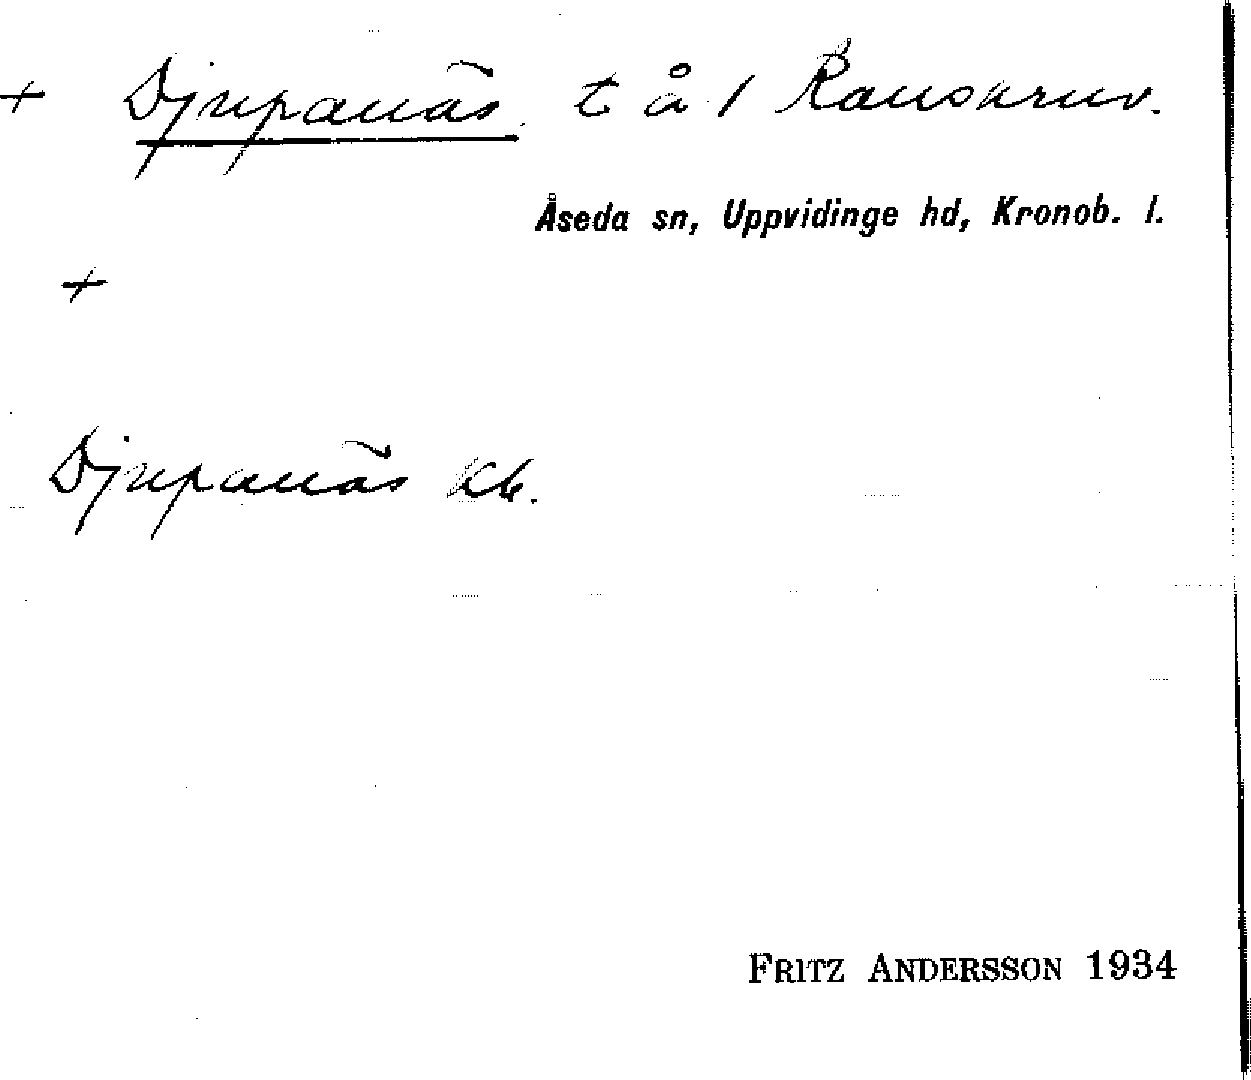 + Djupanäs t å 1 Ranskruv.
Åseda sn, Uppvidinge hd, Kronob. l.
+
Djupanäs Kb.
FRITZ ANDERSSON 1934